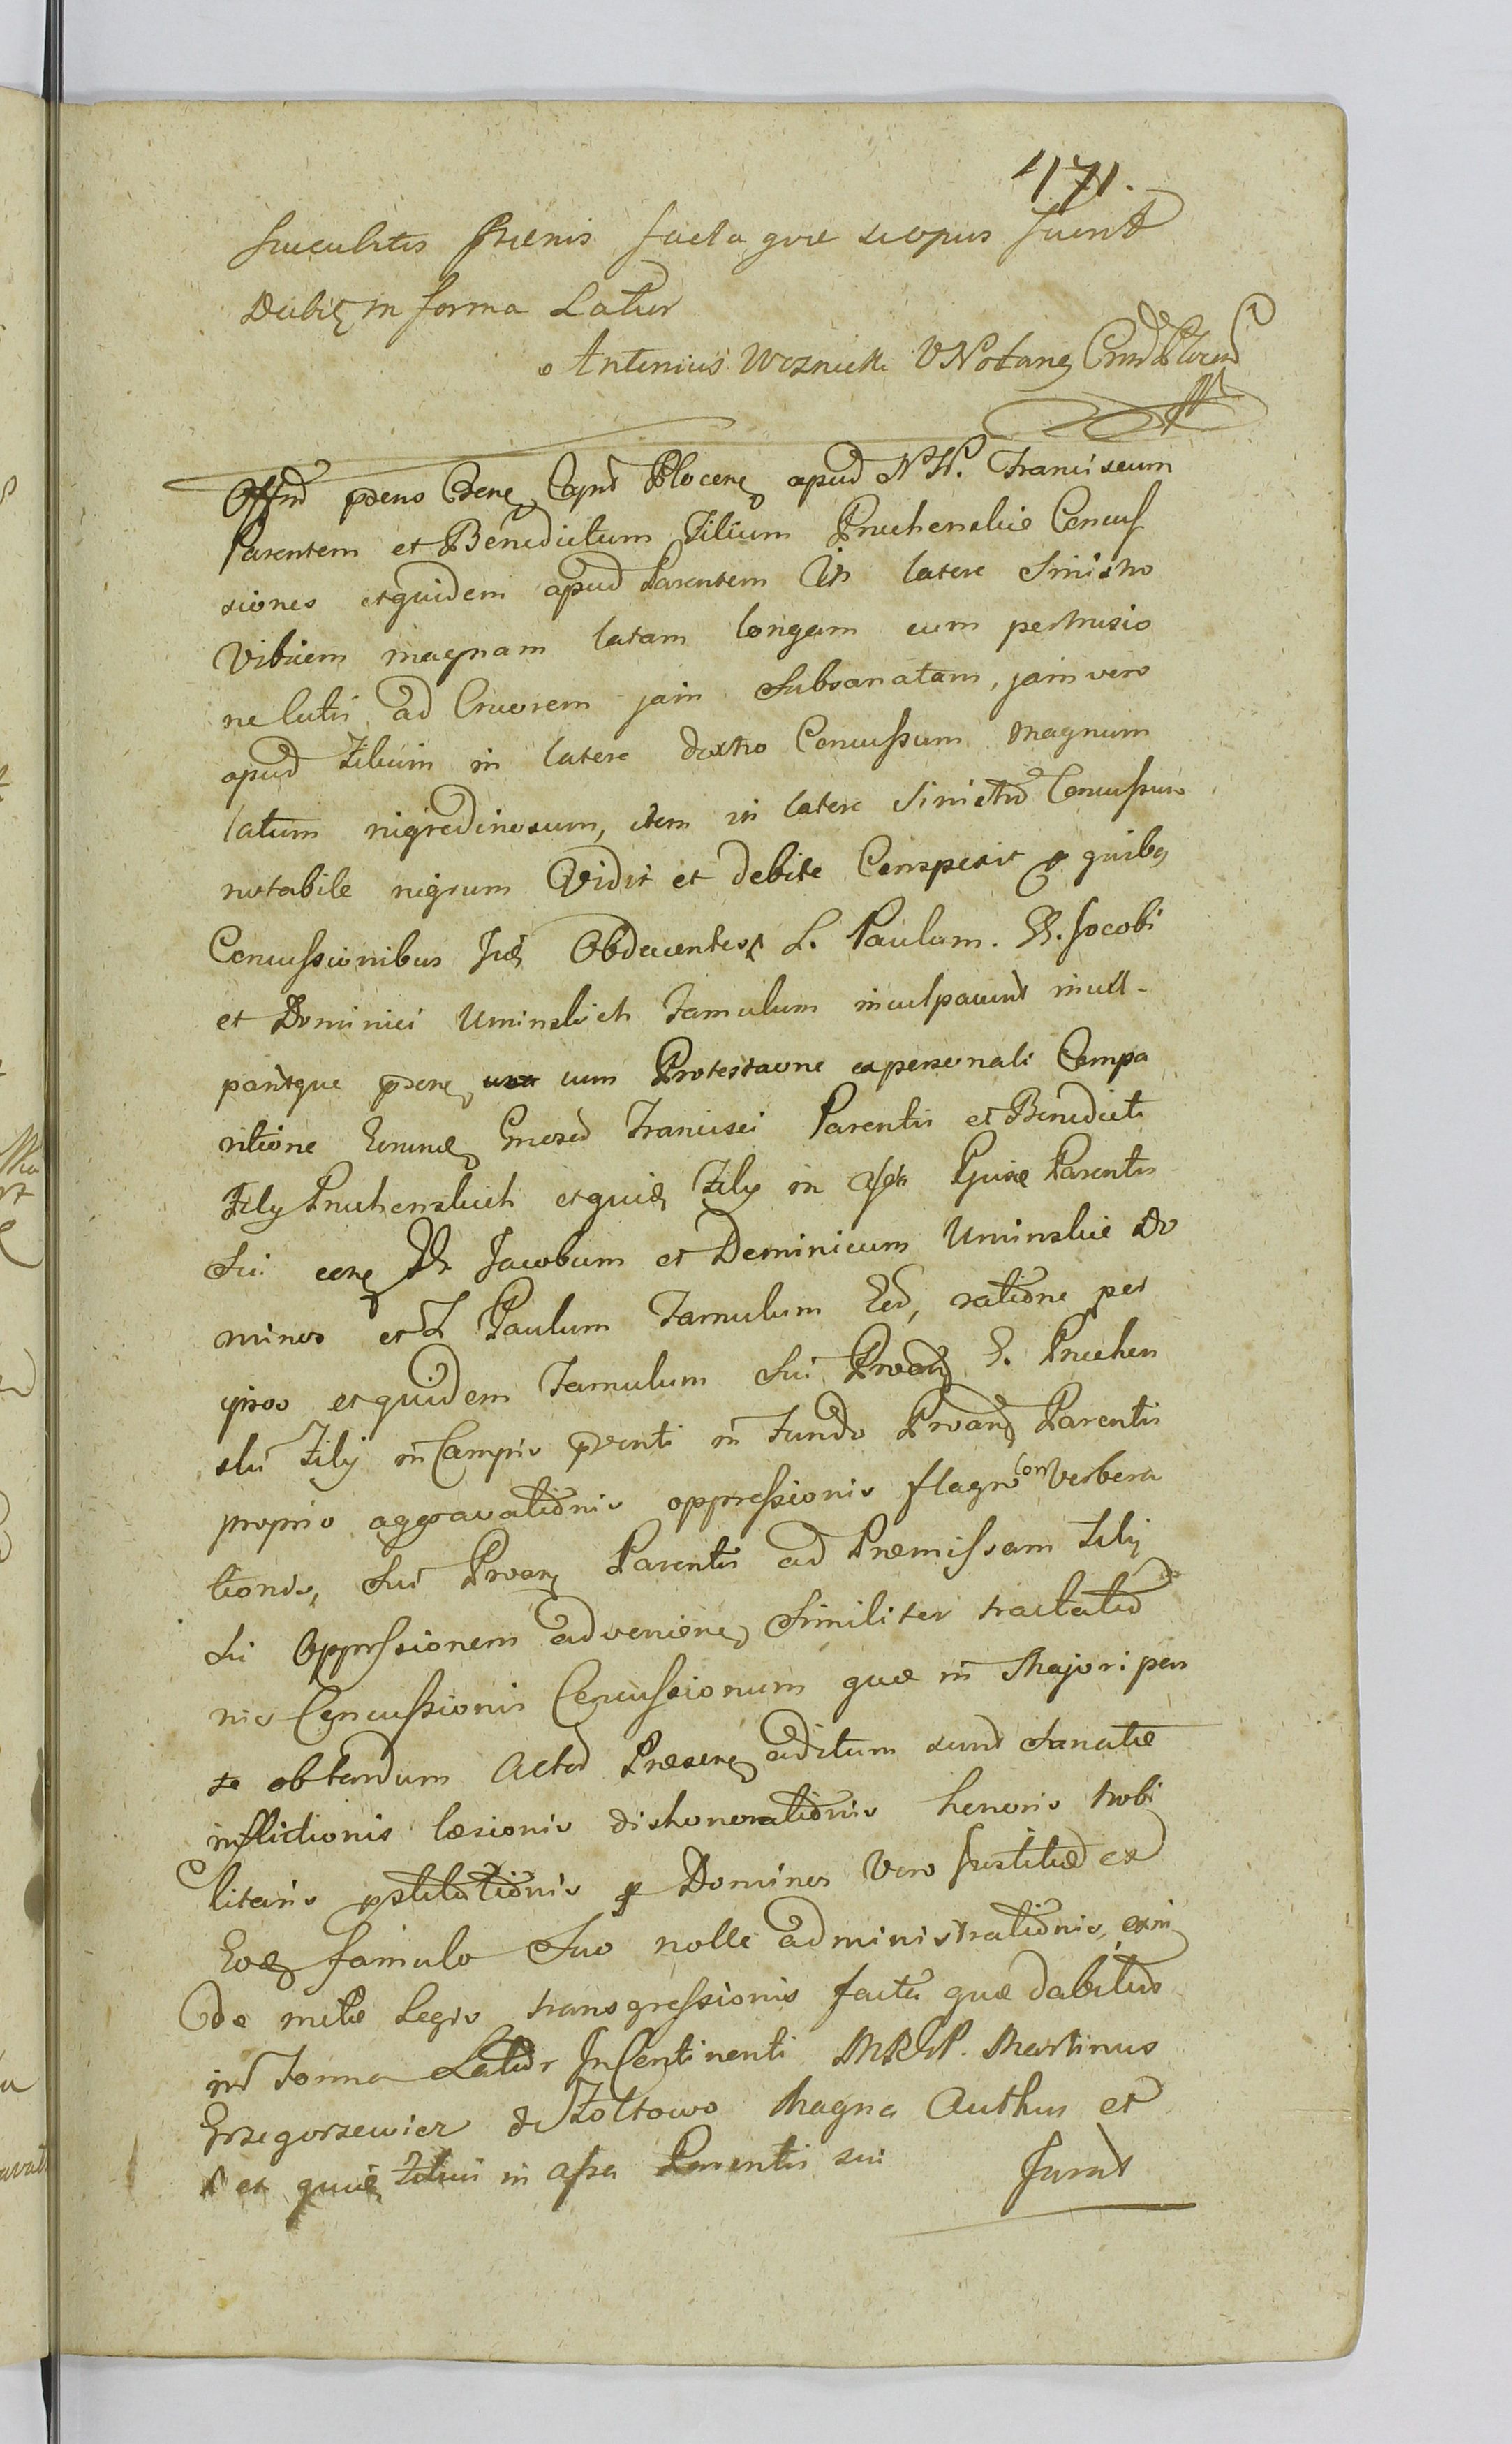 1171.
faeculitis Praenis facta quae uopus fuerit
Debite in forma Latur
Antonius Woznicki VNotarius
Offm praens Caprt Plocen apud NN. Franciscum
Parentem et Benedictum Filium Pruchenskie Concus
siones etquidem apud Parentem in latere Sinistro
Vibicem magnam latam longam cum pertusio
ne Cutis ad Cruorem jam Subsanatam, jam vero
apud Filium in latere dextro Concussum magnum
latum nigredinosum, item in latere Sinistro Concussum
notabile nigrum Vidit et debite Conspexit quibus
Concussionibus Obducentes L. Paulum. NN. Jacobi
et Dominici Uminskich Famulum inculpaverunt incul-
pantque cum Protestaone ex personali Compa
ritione Francisci Parentis et Benedicti
Filij Pruchenskich etquidem Filij in assa Parentis
Sui NN Jacobum et Dominicum Uminskie Do
minos et L Paulum Famulum ratione per
ipsos etquidem Famulum Sui P. Pruchen
ski Filij in Campis in Fundo Parentis
proprio aggravationis oppressionis flagro Con Verbera
tionis, Sui Parentis ad Praemissam Filij
Sui Oppressionem advenien Similiter
nis Concussionis Concussionum quae in Majori par
te obtardum Actod Praesens aditum sunt Sanatae
inflictionis laesionis dishonorationis honoris nobi
litaris Dominos Vero Justitiae ex
famulo Suo nolle administrationis, exin
de Legis transgressionis facta quae dabitur
in Forma Latior In Continenti Martinus
Grzegorzewicz de Zoltowo Magna Authus et
et quid Filius in assa Parentis sui Jurat